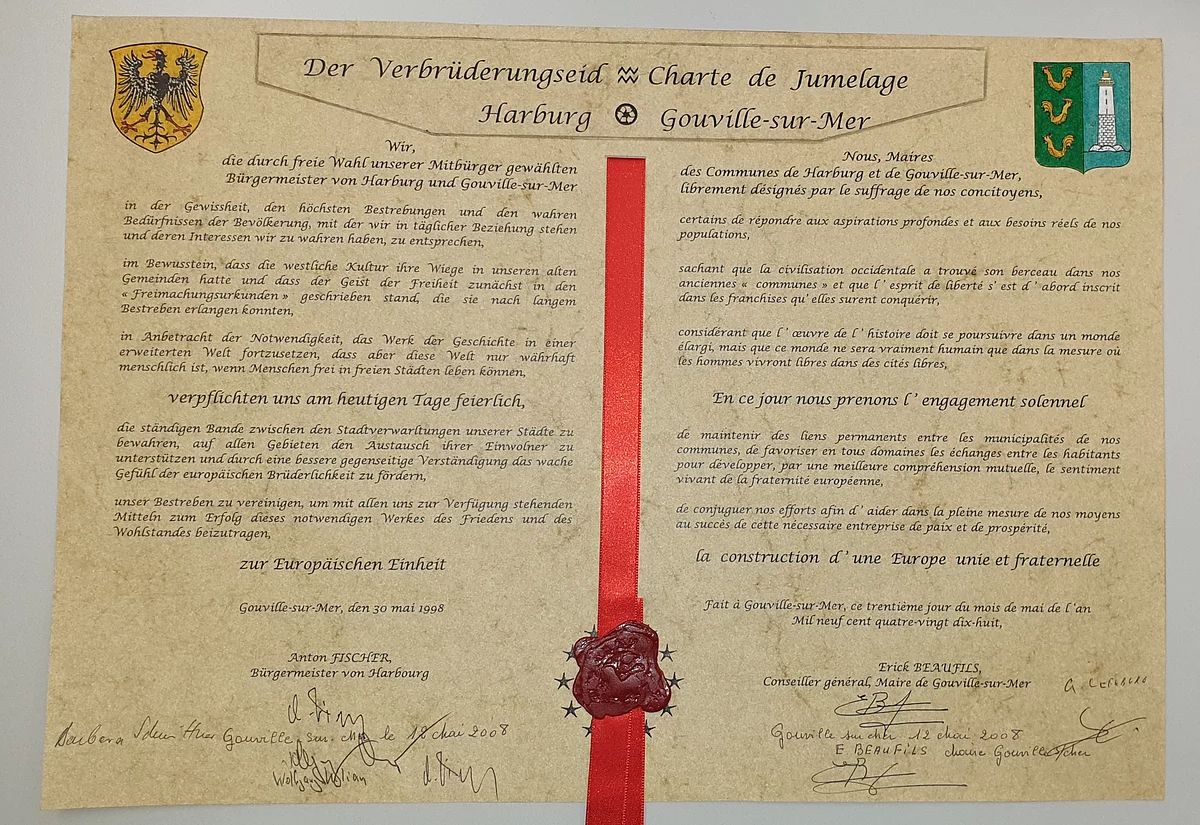 Der Verbrüderungseid Charte de Jumelage
Harburg Gouville-sur-Mer
Wir,
die durch freie Wahl unserer Mitbürger gewählten
Bürgermeister von Harburg und Gouville-sur-Mer
in der Gewissheit, den höchsten Bestrebungen und den wahren
Bedürfnissen der Bevölkerung, mit der wir in täglicher Beziehung stehen
und deren Interessen wir zu wahren haben, zu entsprechen,
im Bewusstein, dass die westliche Kultur ihre Wiege in unseren alten
Gemeinden hatte und dass der Geist der Freiheit zunächst in den
« Freimachungsurkunden » geschrieben stand, die sie nach langem
Bestreben erlangen konnten,
in Anbetracht der Notwendigkeit, das Werk der Geschichte in einer
erweiterten Welt fortzusetzen, dass aber diese Welt nur währhaft
menschlich ist, wenn Menschen frei in freien Städten leben können,
verpflichten uns am heutigen Tage feierlich,
die ständigen Bande zwischen den Stadtverwarltungen unserer Städte zu
bewahren, auf allen Gebieten den Austausch ihrer Einwolner zu
unterstützen und durch eine bessere gegenseitige Verständigung das wache
Gefühl der europäischen Brüderlichkeit zu fördern,
unser Bestreben zu vereinigen, um mit allen uns zur Verfügung stehenden
Mitteln zum Erfolg dieses notwendigen Werkes des Friedens und des
Wohlstandes beizutragen,
zur Europäischen Einheit
Gouville-sur-Mer, den 30 mai 1998
Anton FISCHER,
Bürgermeister von Harbourg
Barbara Gouville sur mer le 18 mai 2008
Wolfgang Kilian
Nous, Maires
des Communes de Harburg et de Gouville-sur-Mer,
librement désignés par le suffrage de nos concitoyens,
certains de répondre aux aspirations profondes et aux besoins réels de nos
populations,
sachant que la civilisation occidentale a trouvé son berceau dans nos
anciennes « communes » et que l' esprit de liberté s' est d' abord inscrit
dans les franchises qu' elles surent conquérir,
considérant que l' œuvre de l' histoire doit se poursuivre dans un monde
élargi, mais que ce monde ne sera vraiment humain que dans la mesure où
les hommes vivront libres dans des cités libres,
En ce jour nous prenons l' engagement solennel
de maintenir des liens permanents entre les municipalités de nos
communes, de favoriser en tous domaines les échanges entre les habitants
pour développer, par une meilleure compréhension mutuelle, le sentiment
vivant de la fraternité européenne,
de conjuguer nos efforts afin d' aider dans la pleine mesure de nos moyens
au succès de cette nécessaire entreprise de paix et de prospérité,
la construction d' une Europe unie et fraternelle
Fait à Gouville-sur-Mer, ce trentième jour du mois de mai de l'an
Mil neuf cent quatre-vingt dix-huit,
Erick BEAUFILS,
Conseiller général, Maire de Gouville-sur-Mer
Gouville sur mer 12 mai 2008
E. BEAUFILS maire Gouville s/mer